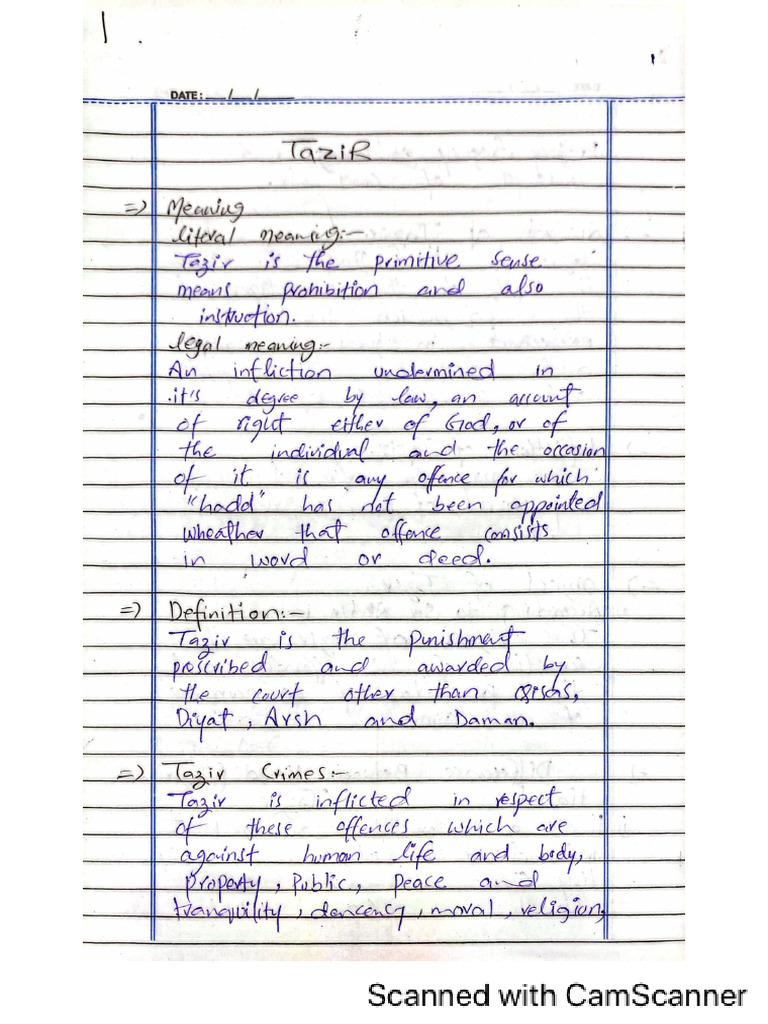 1.
DATE: __/__/____
TaziR
=> Meaning
literal meaning:-
Tazir is the primitive sense
means prohibition and also
instruction.
legal meaning:-
An infliction undermined in
it's degree by law, an account
of right either of God, or of
the individual and the occasion
of it is any offence for which
"hadd" has not been appointed
wheather that offence consists
in word or deed.
=> Definition:-
Tazir is the punishment
prescribed and awarded by
the court other than Qisas,
Diyat, Arsh and Daman.
=> Tazir Crimes:-
Tazir is inflicted in respect
of these offences which are
against human life and body,
property, Public, Peace and
tranquility, dencency, moral, religion,
Scanned with CamScanner